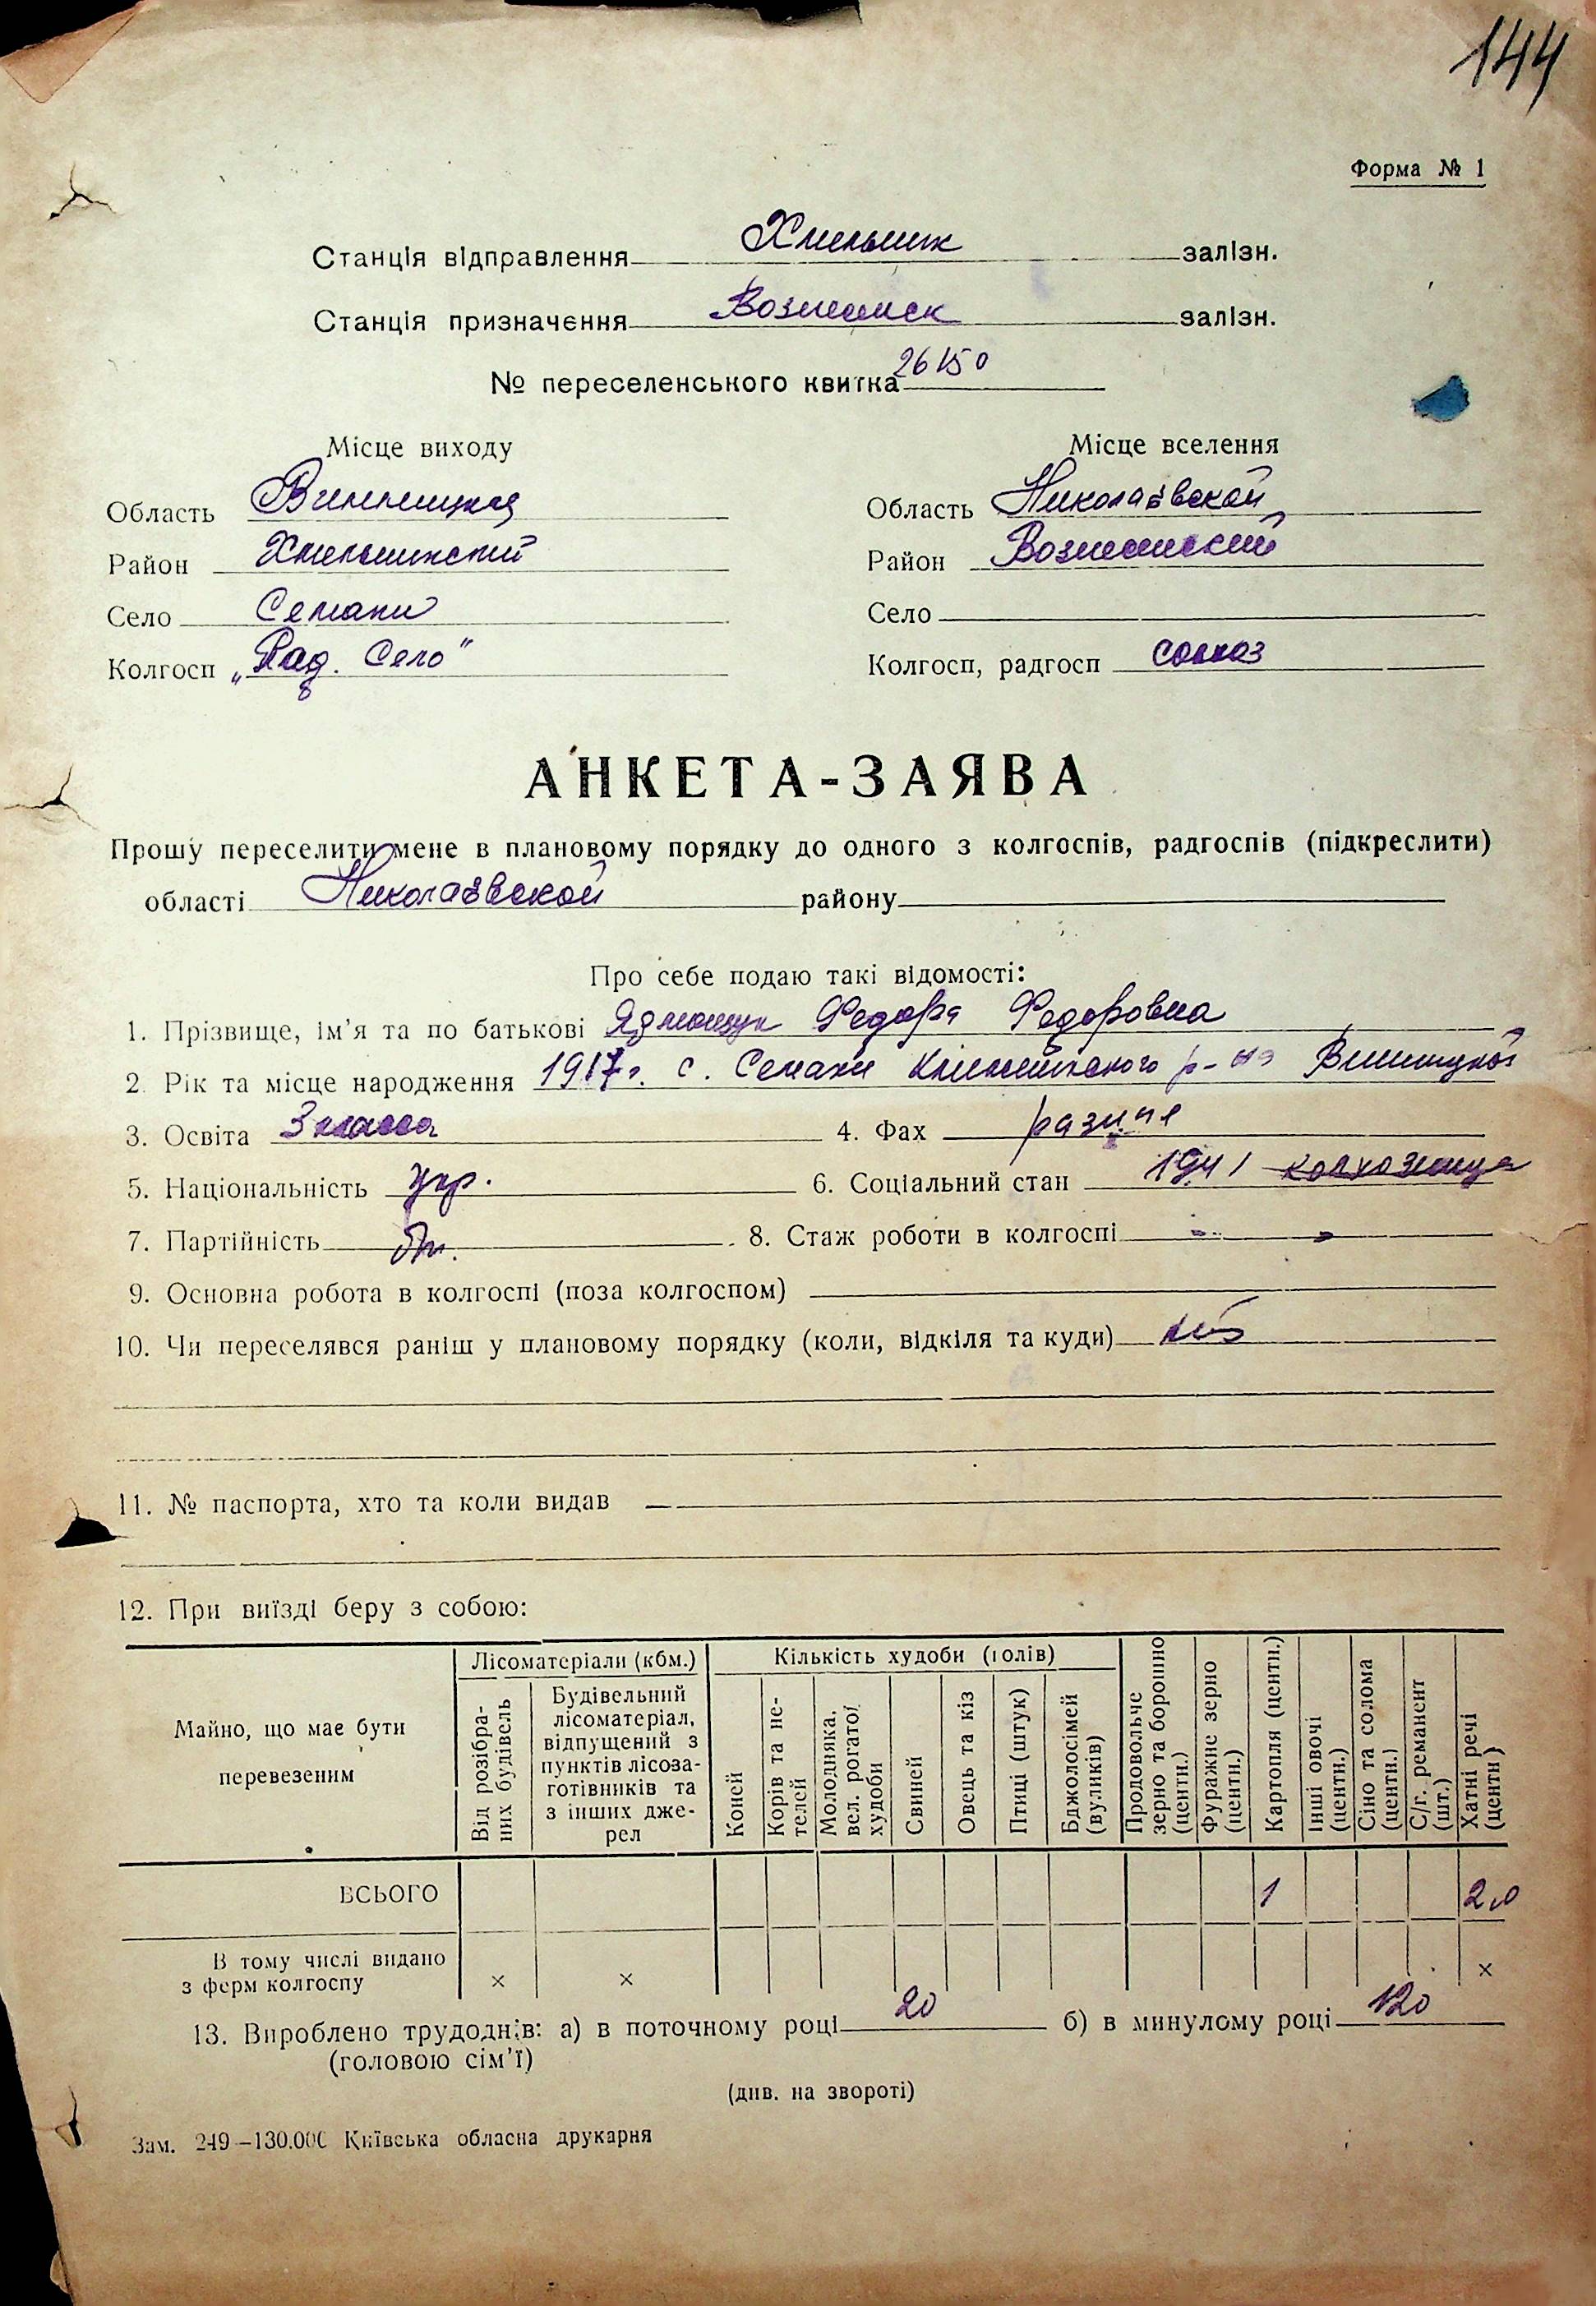 144
Форма № 1
Станція відправлення Хмельник залізн.
Станція призначення Вознесенск залізн.
№ переселенського квитка 26150
Місце виходу Місце вселення
Область Винницкая Область Николаевской
Район Хмельникский Район Вознесенский
Село Семаки Село
Колгосп „Рад. Село" Колгосп, радгосп совхоз
АНКЕТА-ЗАЯВА
Прошу переселити мене в плановому порядку до одного з колгоспів, радгоспів (підкреслити)
області Николаевской району
Про себе подаю такі відомості:
1. Прізвище, ім'я та по батькові Федора Федоровна
2. Рік та місце народження 1917 г. с. Семаки р-на Винницкой
3. Освіта 3 класса 4. Фах разные
5. Національність укр. 6. Соціальний стан 1941 колхозница
7. Партійність бп. 8. Стаж роботи в колгоспі -„- „
9. Основна робота в колгоспі (поза колгоспом)
10. Чи переселявся раніш у плановому порядку (коли, відкіля та куди)
11. № паспорта, хто та коли видав —
12. При виїзді беру з собою:
Майно, що має бути перевезеним
Лісоматеріали (кбм.)
Від розібраних будівель
Будівельний лісоматеріал, відпущений з пунктів лісозаготівників та з інших джерел
Кількість худоби (голів)
Коней
Корів та нетелей
Молодняка, вел. рогатої худоби
Свиней
Овець та кіз
Птиці (штук)
Бджолосімей (вуликів)
Продовольче зерно та борошно (центн.)
Фуражне зерно (центн.)
Картопля (центн.)
Інші овочі (центн.)
Сіно та солома (центн.)
С/г. реманент (шт.)
Хатні речі (центн)
ВСЬОГО 1 2,0
В тому числі видано
з ферм колгоспу × × ×
13. Вироблено трудоднів: а) в поточному році 20 б) в минулому році 120
(головою сім'ї)
(див. на звороті)
Зам. 249—130.000 Київська обласна друкарня